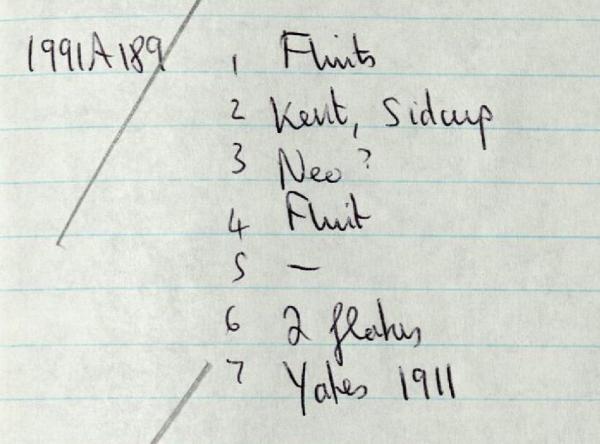 1991A189 1 Flints
2 Kent, Sidcup
3 Neo?
4 Flint
5 —
6 2 flakes
7 Yates 1911